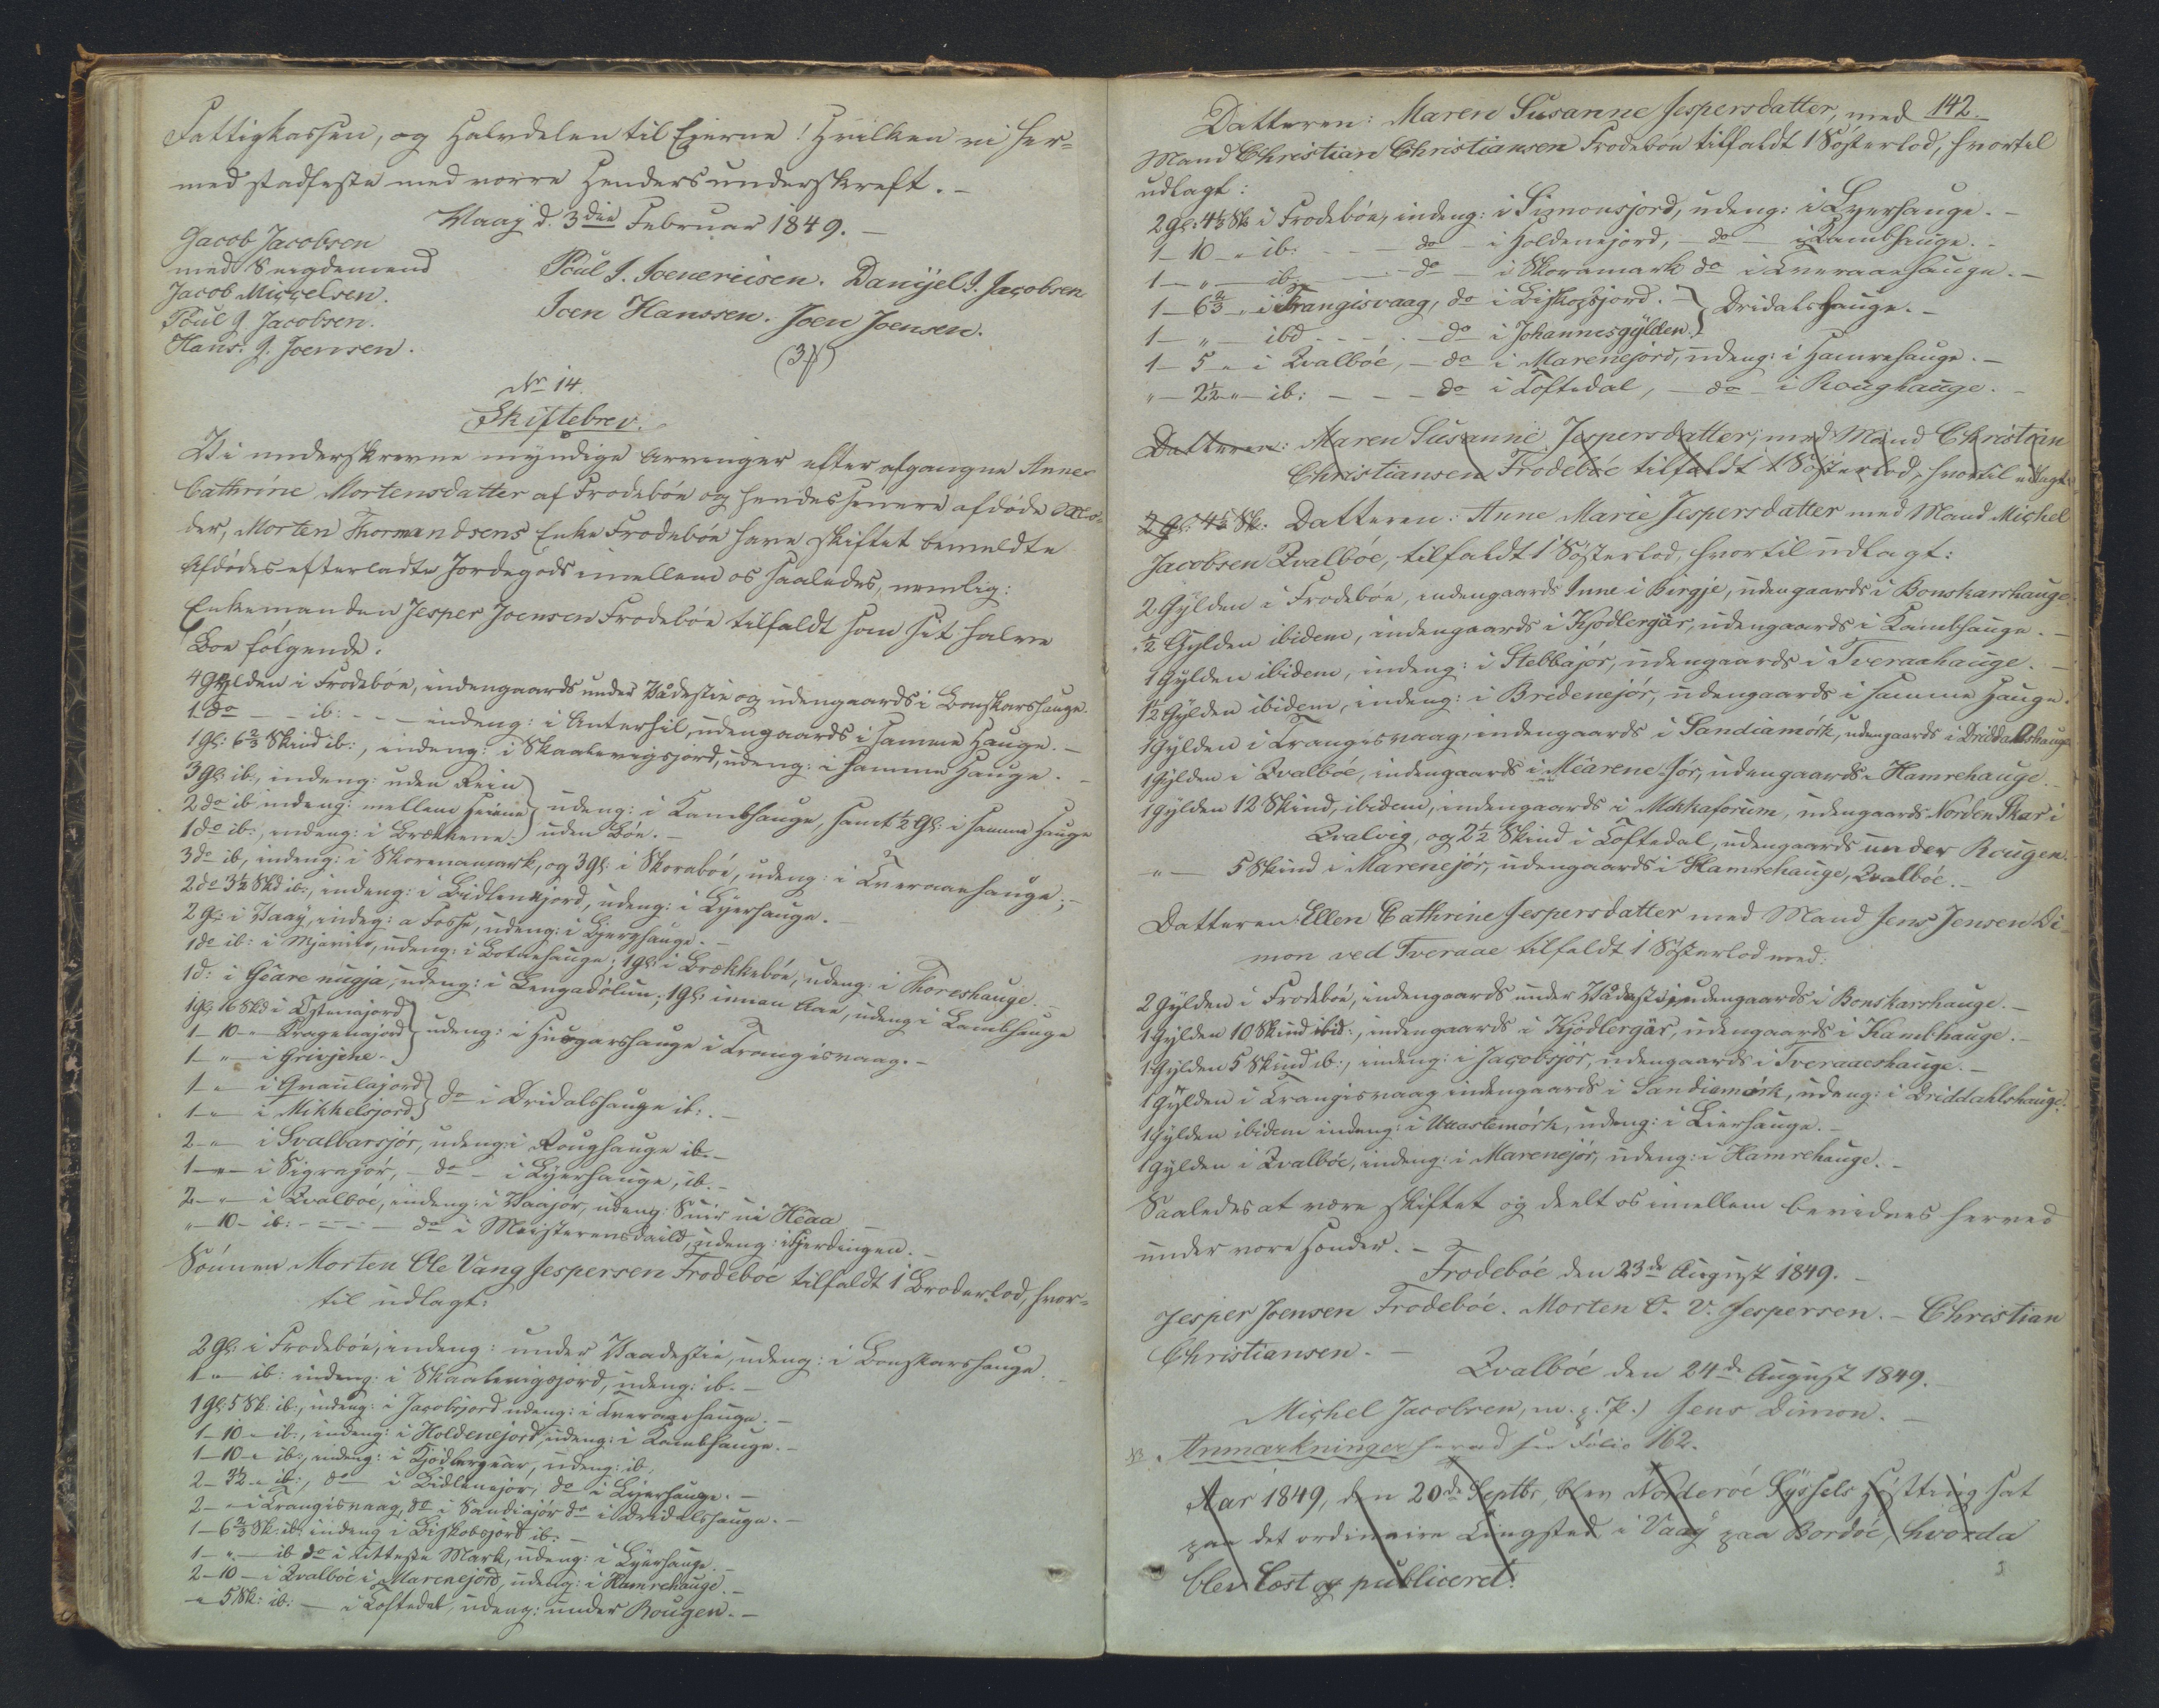 Fattigkassen, og Halvdelen til Eierne! Hvilken vi her-
med stadfeste med vorre Henders underskreft. -
Waaj d. 3die Februar 1849. -
Jacob Jacobsen
med Sragdemend
Jacob Micgelsen.
Poul J. Jacobsen.
Hans: J. Joensen.
Poul J. Joenereisen. Danijel J. Jacobsen
Joen Hanssen. Joen Joensen.
(3/)
No 14.
Skiftebrev.
Vi underskrevne myndige Arvinger efter afgangne Anne
Cathrine Mortensdatter af Frodebøe og hendes senere afdøde Mo-
der, Morten Thormandsens Enke Frodebøe have skiftet bemeldte
Afdødes efterladte Jordegods imellem os saaledes, nemlig:
Enkemanden Jesper Joensen Frodebøe tilfaldt som sit halve
Boe følgende:
4 Gylden i Frodebøe, indengaards under Vådestie og udengaards i Bonskarshauge.
1 do - - ib: - - - indeng: i Anterhil, udengaards i samme Hauge. -
1 Gl: 6 2/3 Skind ib:, indeng: i Skaalevigsjord, udeng: i samme Hauge. -
3 Gl: ib:, indeng: uden Rein
2 do ib indeng: mellem Heiene } udeng: i Kambhauge, samt 1/2 Gl: i samme Hauge
1 do ib:, indeng: i Brekkene.) uden Bøe. -
3 do ib, indeng: i Skorenamark, og 3 Gl: i Skorabøe, udeng: i Tveraaehauge; -
2 do 3 1/2 Skd ib:, indeng: i Bidlenkjord, udeng: i Lyerhauge. -
2 Gl: i Vaaj, indeg: a Fosse, udeng: i Bjerghauge. -
1 do ib: i Mjavite, udeng: i Botnehauge; 1 Gl: i Brekkebøe, udeng: i Thoreshauge. -
1 d: i Gêare nugja, udeng: i Lengadølun; 1 Gl: innan Aae, udeng: i Lambhauge
1 Gl: 16 Skd i Ostenajord
1 - 10 - " Kragenajord } udeng: i Husgarshauge i Trangisvaag. -
1 - " - i Grivjehe -
1 - " - i Graulajord } do i Dridalshauge ib: -
1 - " - i Mikkelsjord
2 - " - i Svalbarsjør, udeng: i Roughauge ib. -
1 - " - i Sigrajør, - do - i Lyerhauge, ib. -
2 - " - i Qvalbøe, indeng: i Vaajør, udeng: Suur ui Hêaa -
" - 10 - ib: - - - - - do i Meisterensdaild, udeng: i Fjerdingen. -
Sønnen Morten Ole Vang Jespersen Frodebøe tilfaldt 1 Broderlod, hvor-
til udlagt:
2 Gl: i Frodebøe, indeng: under Vaadestie, udeng: i Bonskarshauge. -
1 " - ib: indeng: i Skaalevigsjord, udeng: ib. -
1 Gl: 5 Sk: ib:, indeng: i Jacobsjord udeng: i Tveraaehauge. -
1 - 10 - " ib:, indeng: i Holdenejord, udeng: i Kambhauge. -
1 - 10 - " ib:, indeng: i Kjødlergeár, udeng: ib.
2 - 3 1/2 - " ib:, do - i Bidlenejør, do i Lyerhauge. -
2 - " - i Trangisvaag, do i Sandiajør do i Dridalshauge. -
1 - 6 2/3 Sk: ib: indeng i Biskobsjord ib: -
1 - " - ib do i Uttaste Mark, udeng: i Lyerhauge. -
2 - 10 - i Qvalbøe i Marenejord, udeng: i Hamrehauge. -
- " 5 Sk: ib: - i Toftedal, udeng: under Rougen. -
142.
Datteren: Maren Susanne Jespersdatter, med
Mand Christian Christiansen Frodebøe tilfaldt 1 Søsterlod, hvortil
udlagt:
2 Gl: 4 1/2 Sk i Frodebøe, indeng: i Simonsjord, udeng: i Lyerhauge. -
1 - 10 - " ib: - - - - do - i Holdenejord, - do - i Kambhauge. -
1 - " - ib: - - - - do - i Skoramark do i Tveraaehauge. -
1 - 6 2/3 - " i Trangisvaag, do i Biskopsjord. - } Dridalshauge. -
1 - " - ibd - - - - - do i Johannesgylden.
1 - 5 - " i Qvalbøe, - do i Marenejord, udeng: i Hamrehauge. -
" - 2 1/2 - " - ib: - - - do i Toftedal, - do - i Roughauge. -
Datteren: Maren Susanne Jespersdatter, med Mand Christian
Christiansen Frodebøe tilfaldt 1 Søsterlod, hvortil udlagt:
2 Gl: 4 1/2 Sk: Datteren: Anne Marie Jespersdatter med Mand Michel
Jacobsen Qvalbøe, tilfaldt 1 Søsterlod, hvortil udlagt:
2 Gylden i Frodebøe, indengaards Inne i Birgje, udengaards i Bonskarshauge.
1/2 Gylden ibidem, indengaards i Kjødlergär, udengaards i Kambhauge. -
1 Gylden ibidem, indeng: i Stebbajør, udengaards i Tveraahauge. -
1 1/2 Gylden ibidem, indeng: i Bredenejør, udengaards i samme Hauge.
1 Gylden i Trangisvaag, indengaards i Sandiamørk, udengaards i Driddahlshauge
1 Gylden i Qvalbøe, indengaards i Mêarene Jør, udengaards i Hamrehauge. -
1 Gylden 12 Skind, ibidem, indengaards i Mekkaforum, udengaards Norden Skar i
Qvalvig, og 2 1/2 Skind i Toftedal, udengaards under Rougen.
- " - 5 Skind i Marenejør, udengaards i Hamrehauge, Qvalbøe. -
Datteren: Ellen Cathrine Jespersdatter med Mand Jens Jensen Di-
mon ved Tveraae tilfaldt 1 Søsterlod med:
2 Gylden i Frodebøe, indengaards under Vådestie, udengaards i Bonskarshauge. -
1 Gylden 10 Skind ibid:, indengaards i Kjødlergär, udengaards i Kambhauge. -
1 Gylden 5 Skind ib:, indeng: i Jacobsjør, udengaards i Tveraaeshauge. -
1 Gylden i Trangisvaag indengaards i Sandiamørk, udeng: i Driddahlshauge.
1 Gylden ibidem indeng: i Uttastemørk, udeng: i Lierhauge. -
1 Gylden i Qvalbøe, indeng: i Marenejør, udeng: i Hamrehauge. -
Saaledes at være skiftet og deelt os imellem bevidnes herved
under vore Hænder. -
Frodebøe den 23de August 1849. -
Jesper Joensen Frodebøe. Morten O. V. Jespersen. - Christian
Christiansen. -
Qvalbøe den 24de August 1849. -
Michel Jacobsen, m. p. P.) Jens Dimon. -
NB. Anmærkninger herved see Folio 162.
Aar 1849, den 20de Septbr, blev Norderøe Syssels Høstting sat
paa det ordinaire Tingsted i Vaaÿ paa Bordøe, hvorda
blev læst og publiceret: